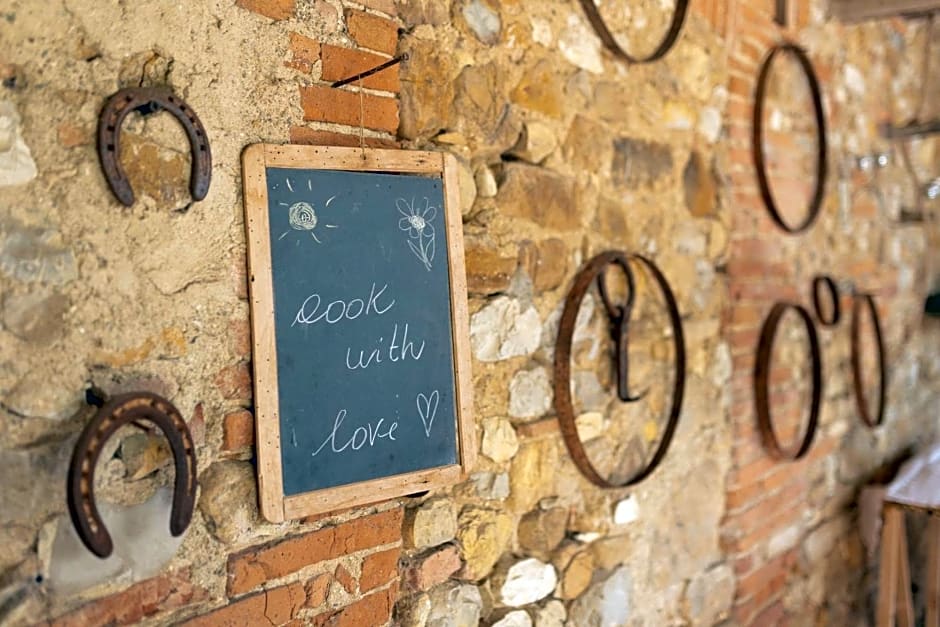 cook
with
love